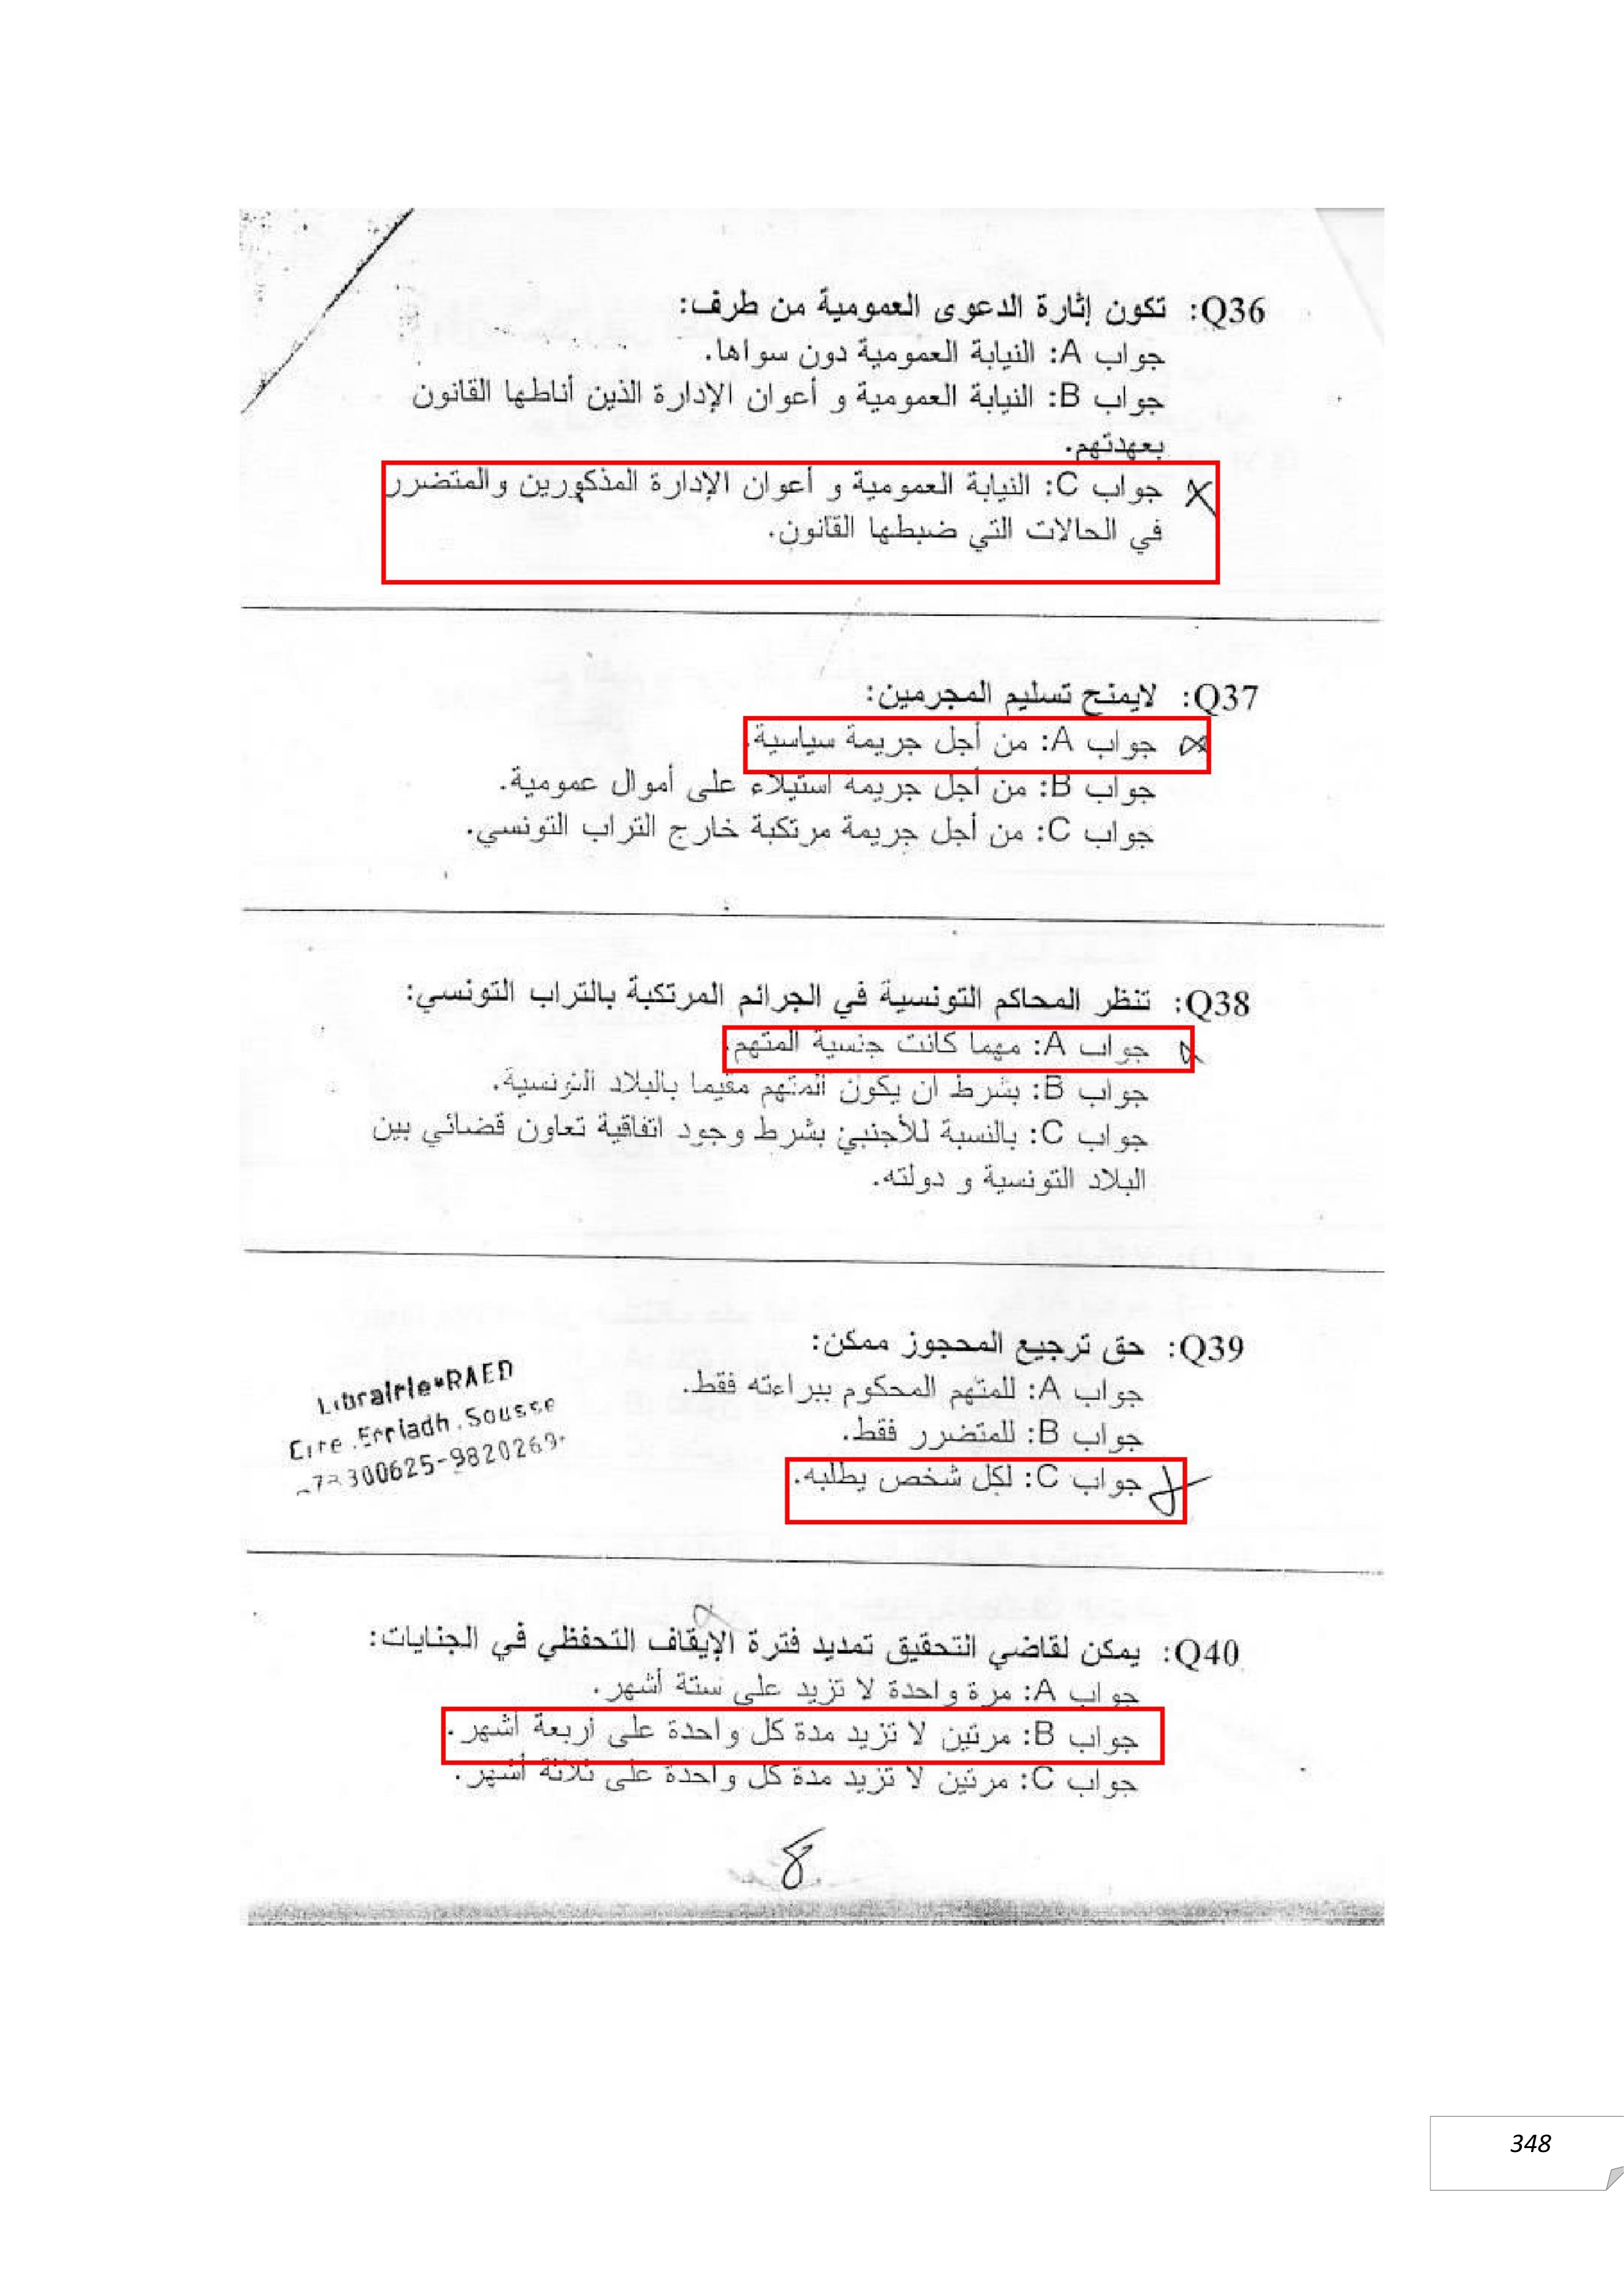 Q36: تكون إثارة الدعوى العمومية من طرف:
جواب A: النيابة العمومية دون سواها.
جواب B: النيابة العمومية و أعوان الإدارة الذين أناطها القانون
بعهدتهم.
جواب C: النيابة العمومية و أعوان الإدارة المذكورين والمتضرر
في الحالات التي ضبطها القانون.
Q37: لايمنح تسليم المجرمين:
جواب A: من أجل جريمة سياسية.
جواب B: من أجل جريمة استيلاء على أموال عمومية.
جواب C: من أجل جريمة مرتكبة خارج التراب التونسي.
Q38: تنظر المحاكم التونسية في الجرائم المرتكبة بالتراب التونسي:
جواب A: مهما كانت جنسية المتهم.
جواب B: بشرط أن يكون المتهم مقيما بالبلاد التونسية.
جواب C: بالنسبة للأجنبي بشرط وجود اتفاقية تعاون قضائي بين
البلاد التونسية و دولته.
Q39: حق ترجيع المحجوز ممكن:
جواب A: للمتهم المحكوم ببراءته فقط.
جواب B: للمتضرر فقط.
جواب C: لكل شخص يطلبه.
Librairie*RAED
Cite .Erriadh .Sousse
300625-9820269
Q40: يمكن لقاضي التحقيق تمديد فترة الإيقاف التحفظي في الجنايات:
جواب A: مرة واحدة لا تزيد على ستة أشهر.
جواب B: مرتين لا تزيد مدة كل واحدة على أربعة أشهر.
جواب C: مرتين لا تزيد مدة كل واحدة على ثلاثة أشهر.
8
348